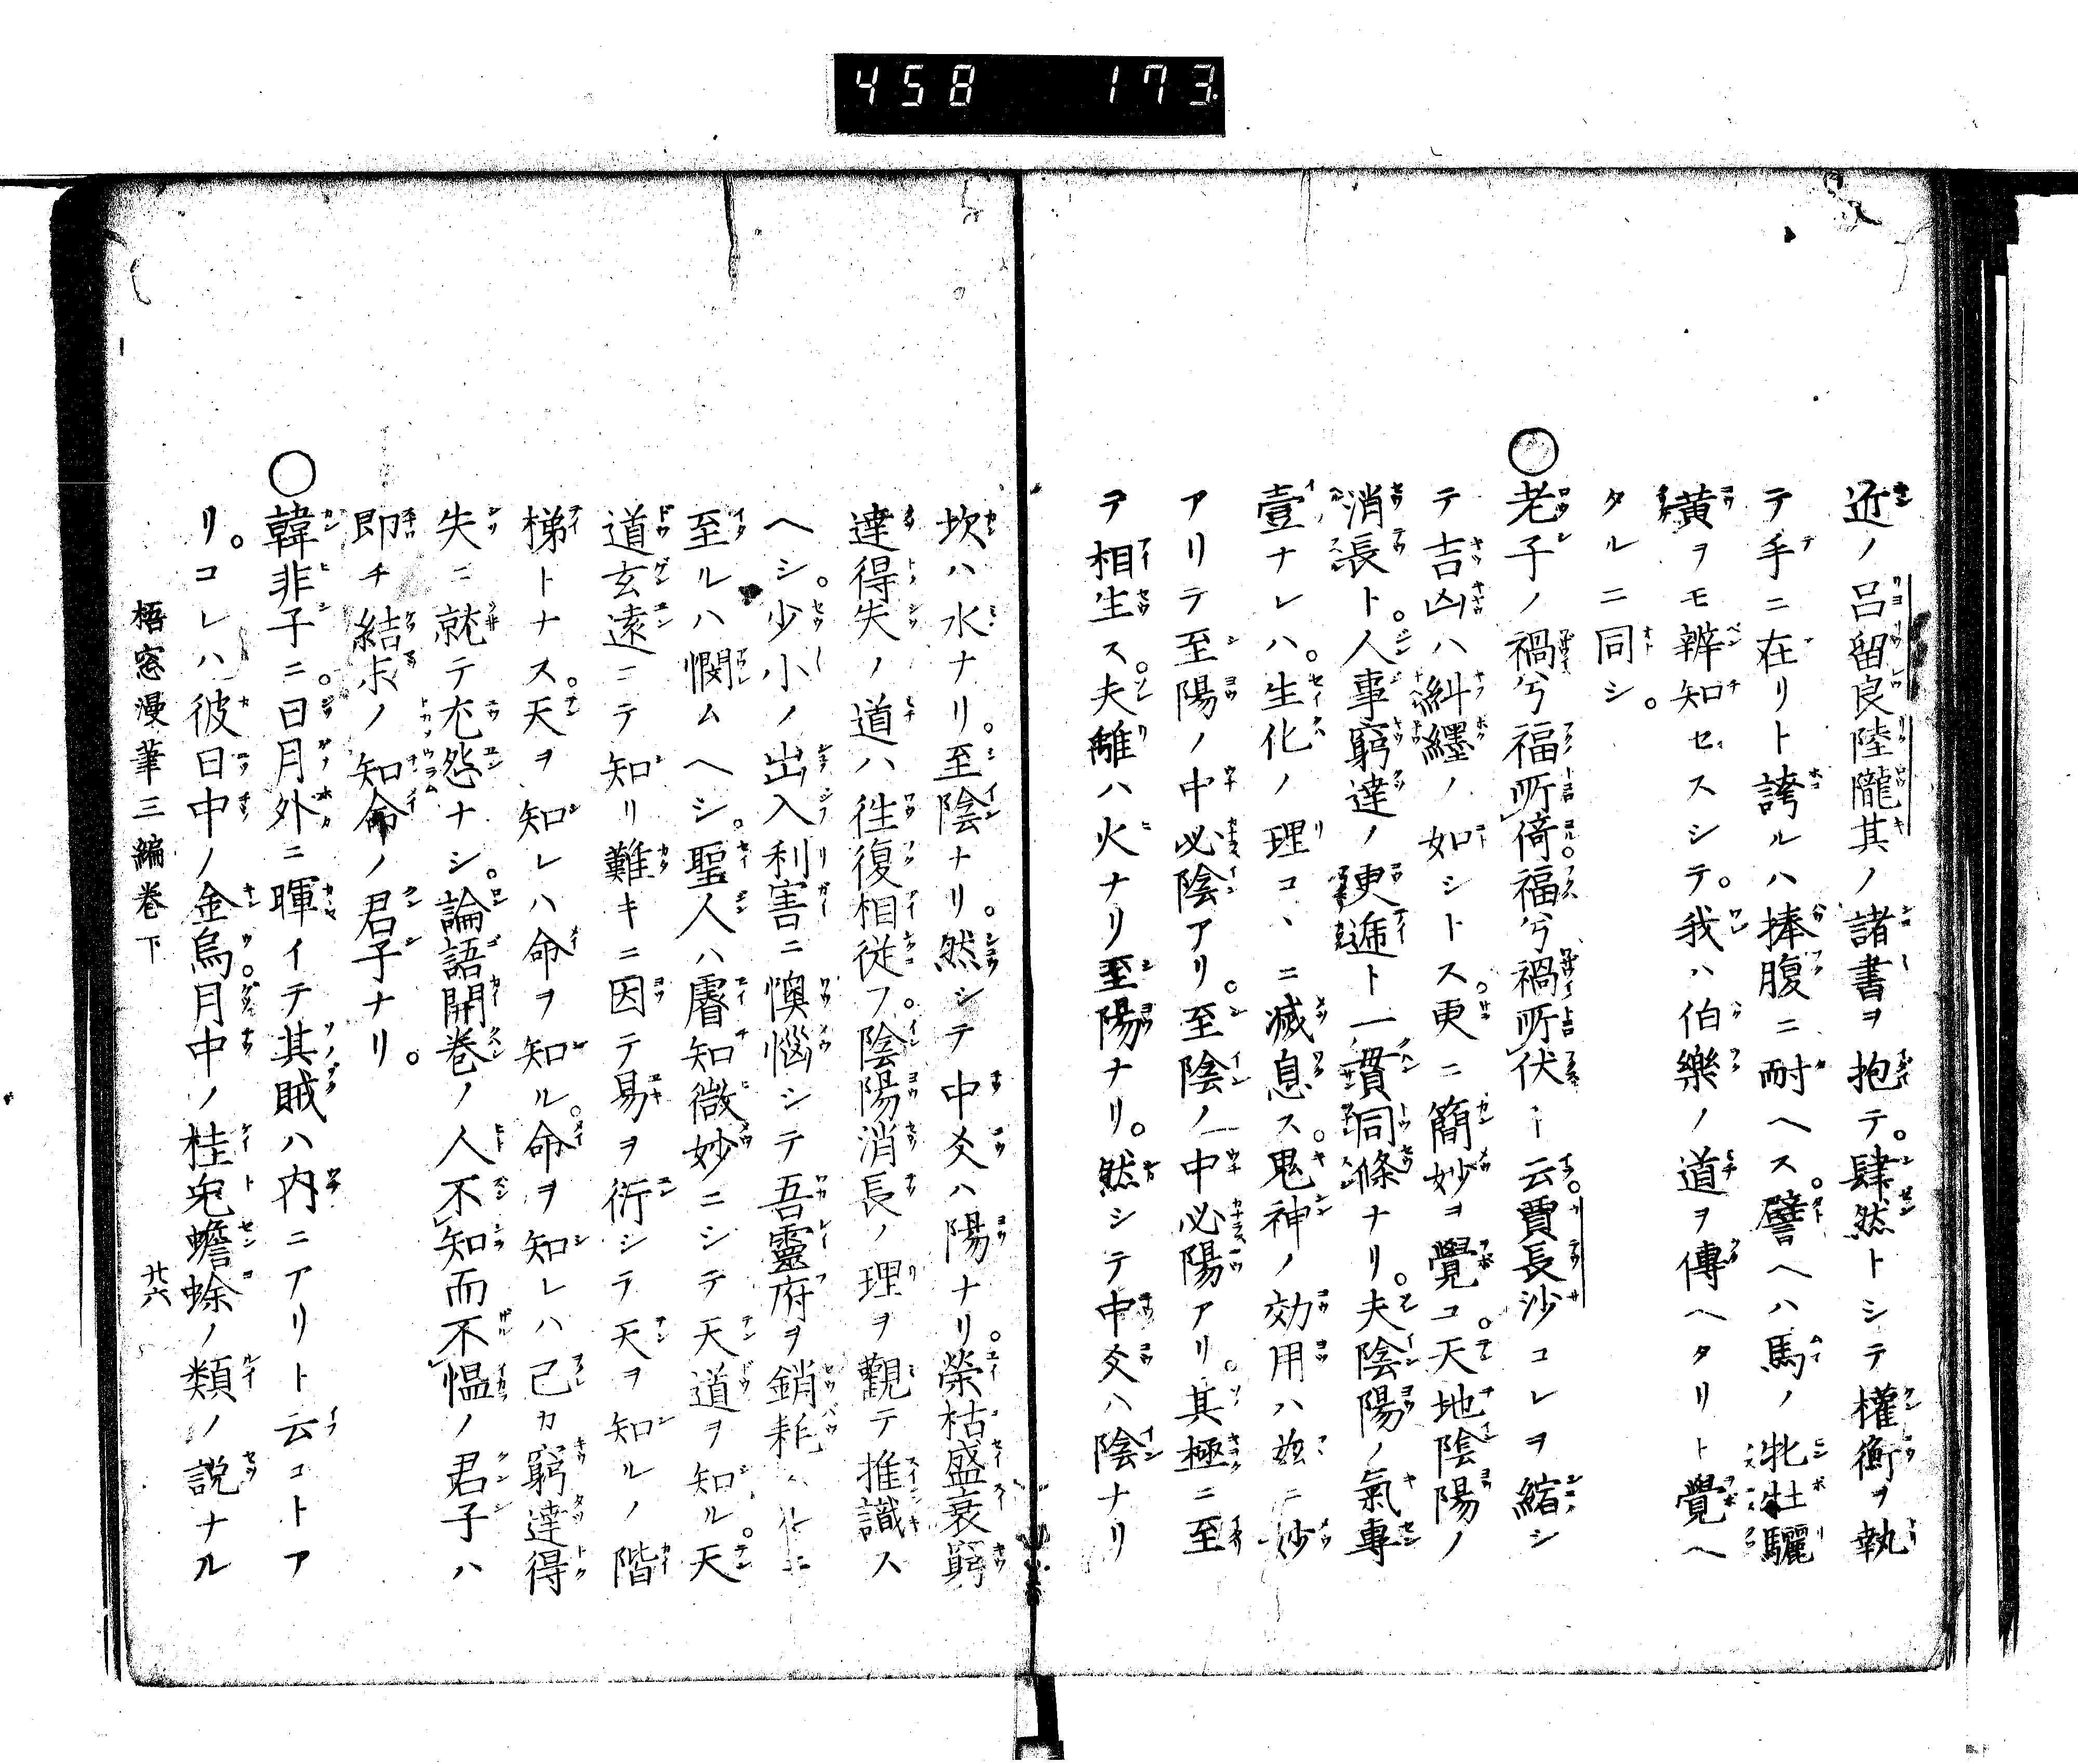 458 173
近ノ呂留良陸隴其ノ諸書ヲ抱テ。肆然トシテ權衡ヲ執
テ手ニ在リト誇ルハ捧腹ニ耐ヘス。譬ヘハ馬ノ牝牡驪
黄ヲモ辨知セスシテ。我ハ伯樂ノ道ヲ傳ヘタリト覺ヘ
タルニ同シ。
○老子ノ禍兮福所倚。福兮禍所伏ト云。賈長沙コレヲ縮シ
テ吉凶ハ糾纆ノ如シトス。更ニ簡妙ヲ覺コ。天地陰陽ノ
消長ト。人事窮達ノ更遞ト一貫同條ナリ。夫陰陽ノ氣專
壹ナレハ。生化ノ理コヽニ滅息ス。鬼神ノ効用ハ茲ニ妙
アリテ至陽ノ中必陰アリ。至陰ノ中必陽アリ。其極ニ至
テ相生ス。夫離ハ火ナリ至陽ナリ。然シテ中爻ハ陰ナリ
坎ハ水ナリ。至陰ナリ。然シテ中爻ハ陽ナリ。榮枯盛衰窮
達得失ノ道ハ徃復相従フ。陰陽消長ノ理ヲ觀テ推識ス
ヘシ。少小ノ出入利害ニ懊惱シテ吾靈府ヲ銷耗スルニ
至ルハ憫ムヘシ。聖人ハ睿知微妙ニシテ天道ヲ知ル。天
道玄遠ニテ知リ難キニ因テ易ヲ衍シテ天ヲ知ルノ階
梯トナス。天ヲ知レハ命ヲ知ル。命ヲ知レハ己カ窮達得
失ニ就テ尤怨ナシ。論語開巻ノ人不知而不愠ノ君子ハ
即チ結末ノ知命ノ君子ナリ。
○韓非子ニ。日月外ニ暉イテ其賊ハ内ニアリト云コトア
リ。コレハ彼日中ノ金烏。月中ノ桂兎蟾蜍ノ類ノ説ナル
梧窓漫筆三編巻下 廿六